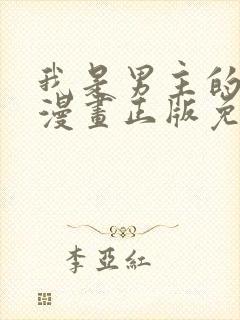 我是男主的
漫畫正版免
李亞紅